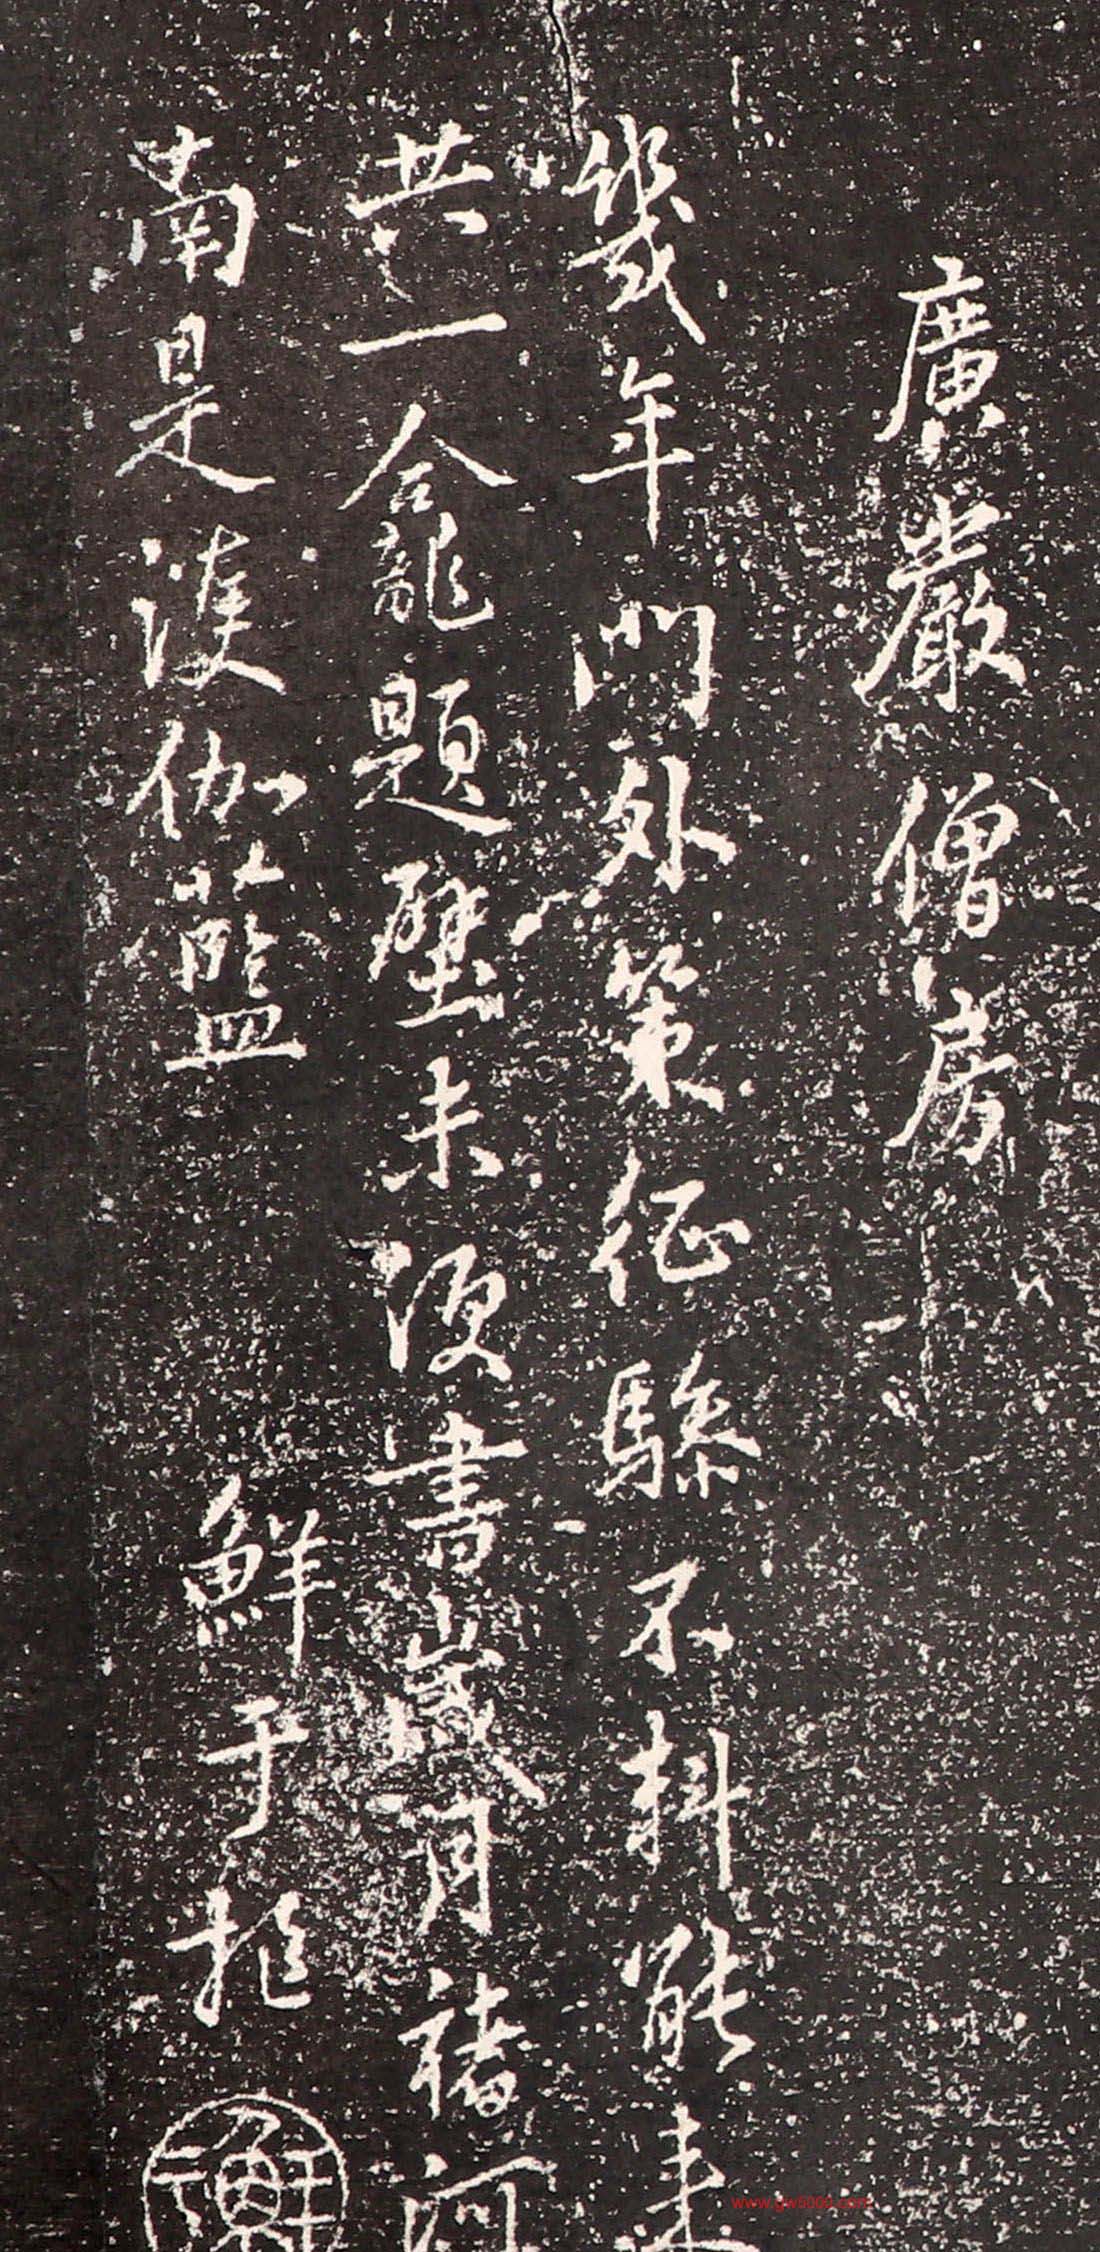 廣嚴僧房
幾年門外策征驂不料能來
共一龕題壁未須書歲月褚河
南是護伽藍 鮮于
www.gw5000.com